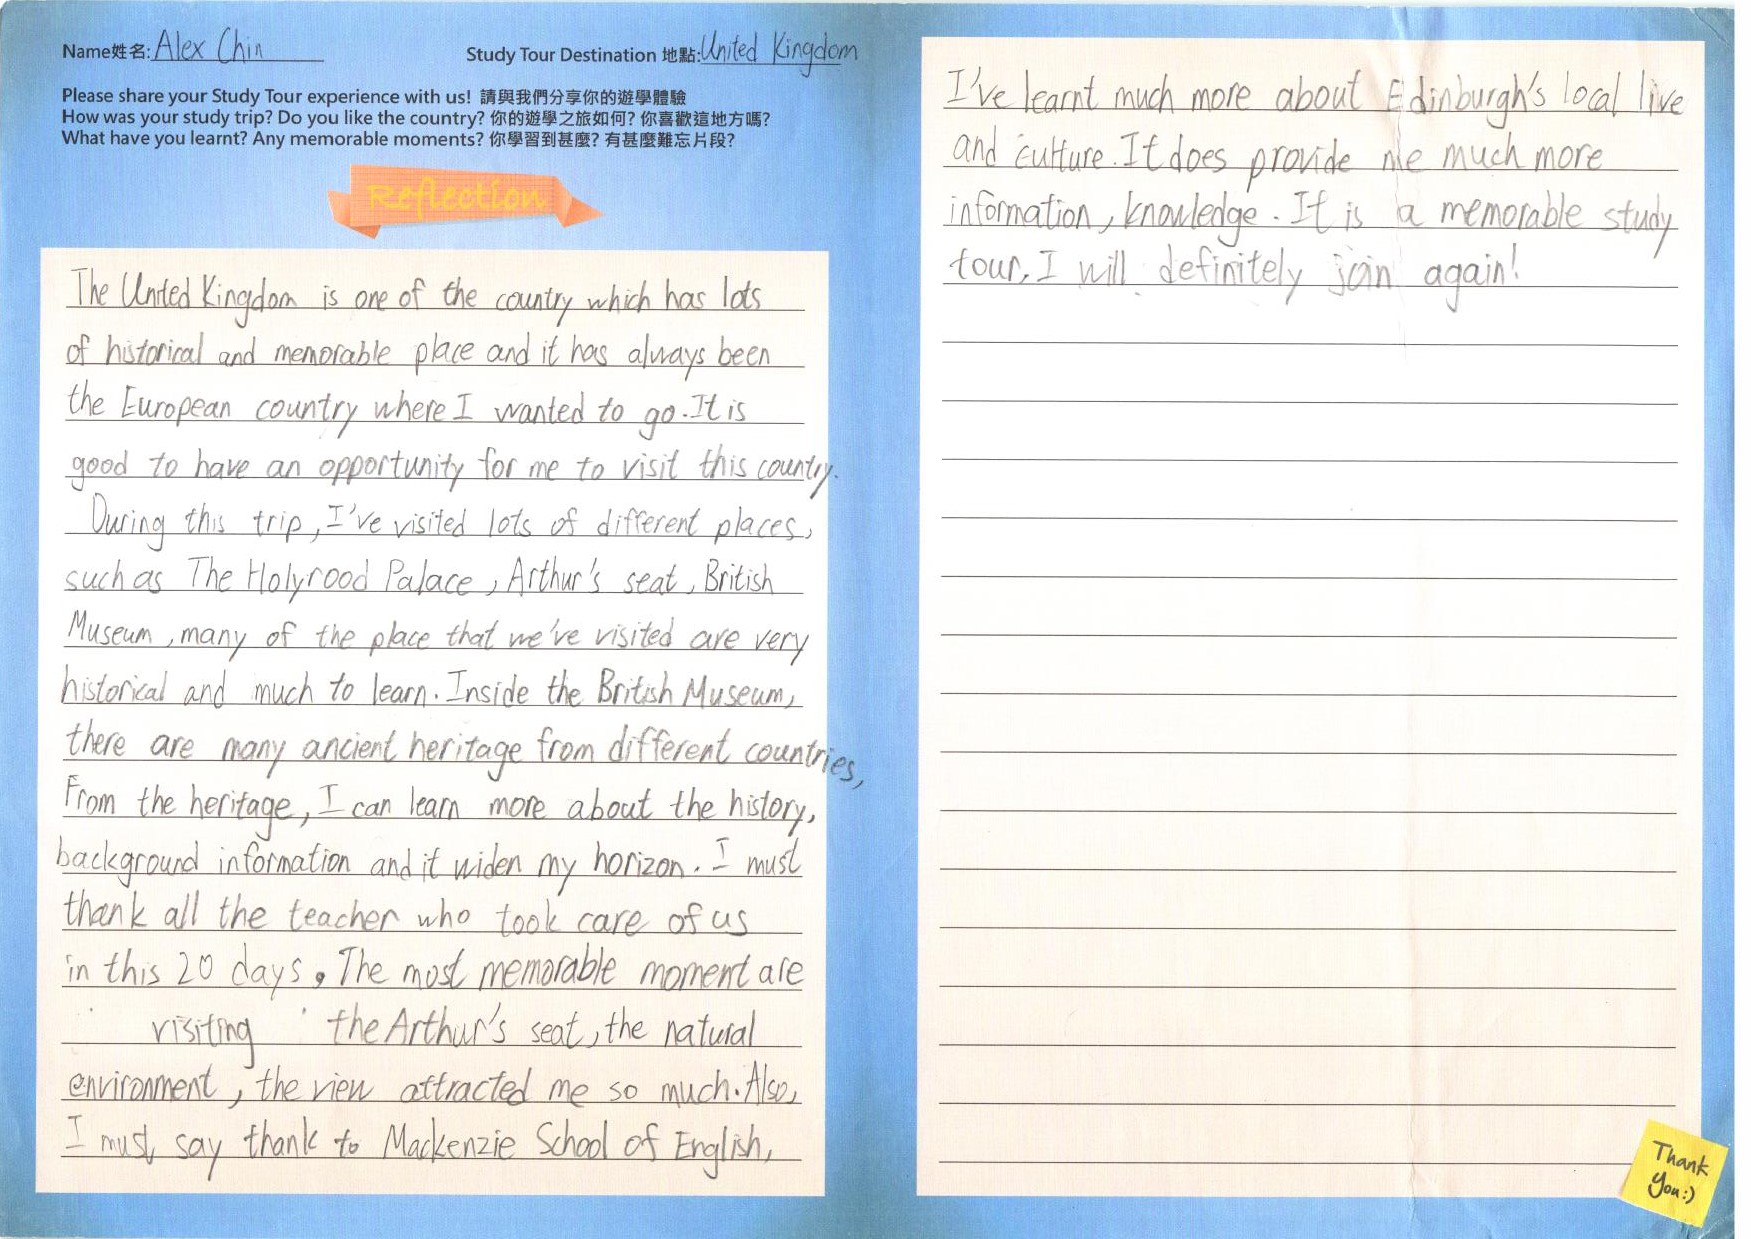 Name姓名: Alex Chin
Study Tour Destination 地點: United Kingdom
Please share your Study Tour experience with us! 請與我們分享你的遊學體驗
How was your study trip? Do you like the country? 你的遊學之旅如何? 你喜歡這地方嗎?
What have you learnt? Any memorable moments? 你學習到甚麼? 有甚麼難忘片段?
Reflection
The United Kingdom is one of the country which has lots
of historical and memorable place and it has always been
the European country where I wanted to go. It is
good to have an opportunity for me to visit this country.
During this trip, I've visited lots of different places,
such as The Holyrood Palace, Arthur's seat, British
Museum, many of the place that we've visited are very
historical and much to learn. Inside the British Museum,
there are many ancient heritage from different countries,
From the heritage, I can learn more about the history,
background information and it widen my horizon. I must
thank all the teacher who took care of us
in this 20 days. The most memorable moment are
visiting the Arthur's seat, the natural
environment, the view attracted me so much. Also,
I must say thank to Mackenzie School of English,
I've learnt much more about Edinburgh's local live
and culture. It does provide me much more
information, knowledge. It is a memorable study
tour, I will definitely join again!
Thank
You:)